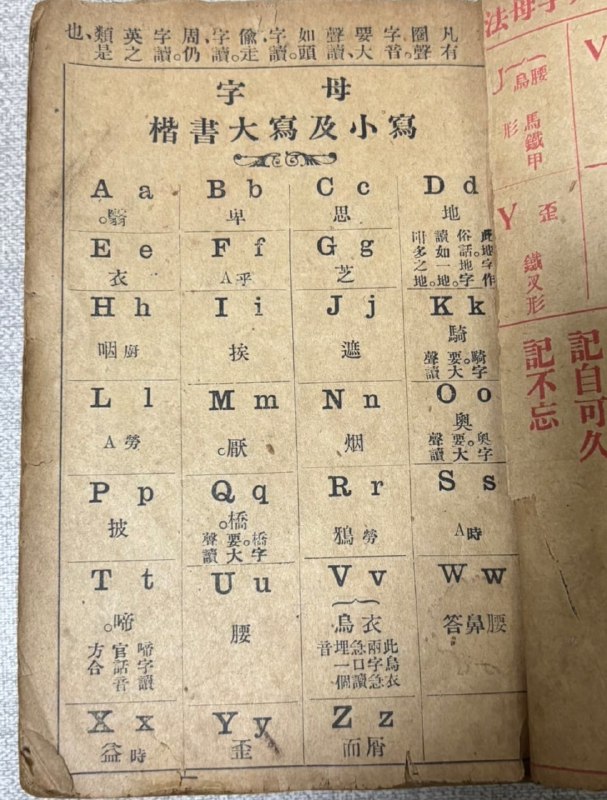 凡有圈聲字音要大聲讀、如頭字讀偸、走字讀周、仍字讀英之類是也、
字母
楷書大寫及小寫
A a
翳。
B b
卑
C c
思
D d
地
此地字作
俗話。地字
讀如一地。
叫多之地。
E e
衣
F f
A乎
G g
芝
H h
咽厨
I i
挨
J j
遮
K k
騎
騎字。
要大
聲讀
L l
A勞
M m
厭。
N n
烟
O o
奧
奧字。
要大
聲讀
P p
披
Q q
橋。
橋字。
要大
聲讀
R r
鴉勞
S s
A時
T t
啼。
啼字讀
官話音
方合
U u
腰
V v
烏衣
此烏衣
兩字急
急口讀
埋一個
音
W w
答鼻腰
X x
益時
Y y
歪
Z z
而屑
法母字
J
烏腰
馬鐵甲形
V
Y
歪
鐵叉形
記自可久
記不忘